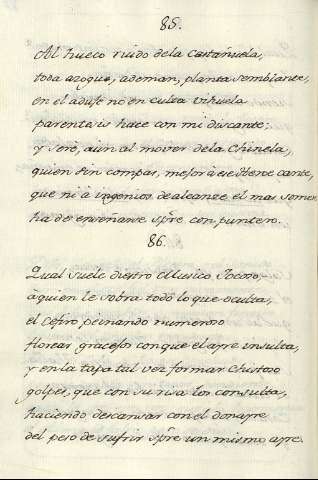 85.
Al hueco ruido dela Castañuela,
toda azogue, ademan, planta semblante,
en el adufe no en culta vihuela
parentesis hace con mi discante;
y seré, aun al mover dela Chinela,
quien sin compas, mejor
que ni à ingenios de alcanze el mas somero
ha de enseñarse spre con puntero.
86.
Qual suele diestro Musico Jocoso,
à quien le sobra todo lo que oculta,
el Cefiro peinando numeroso
florear gracejos con que el ayre insulta,
y en la tapa tal vez formar chistoso
golpes, que con su risa los consulta,
haciendo descansar con el donayre
del peso de sufrir spre un mismo ayre.